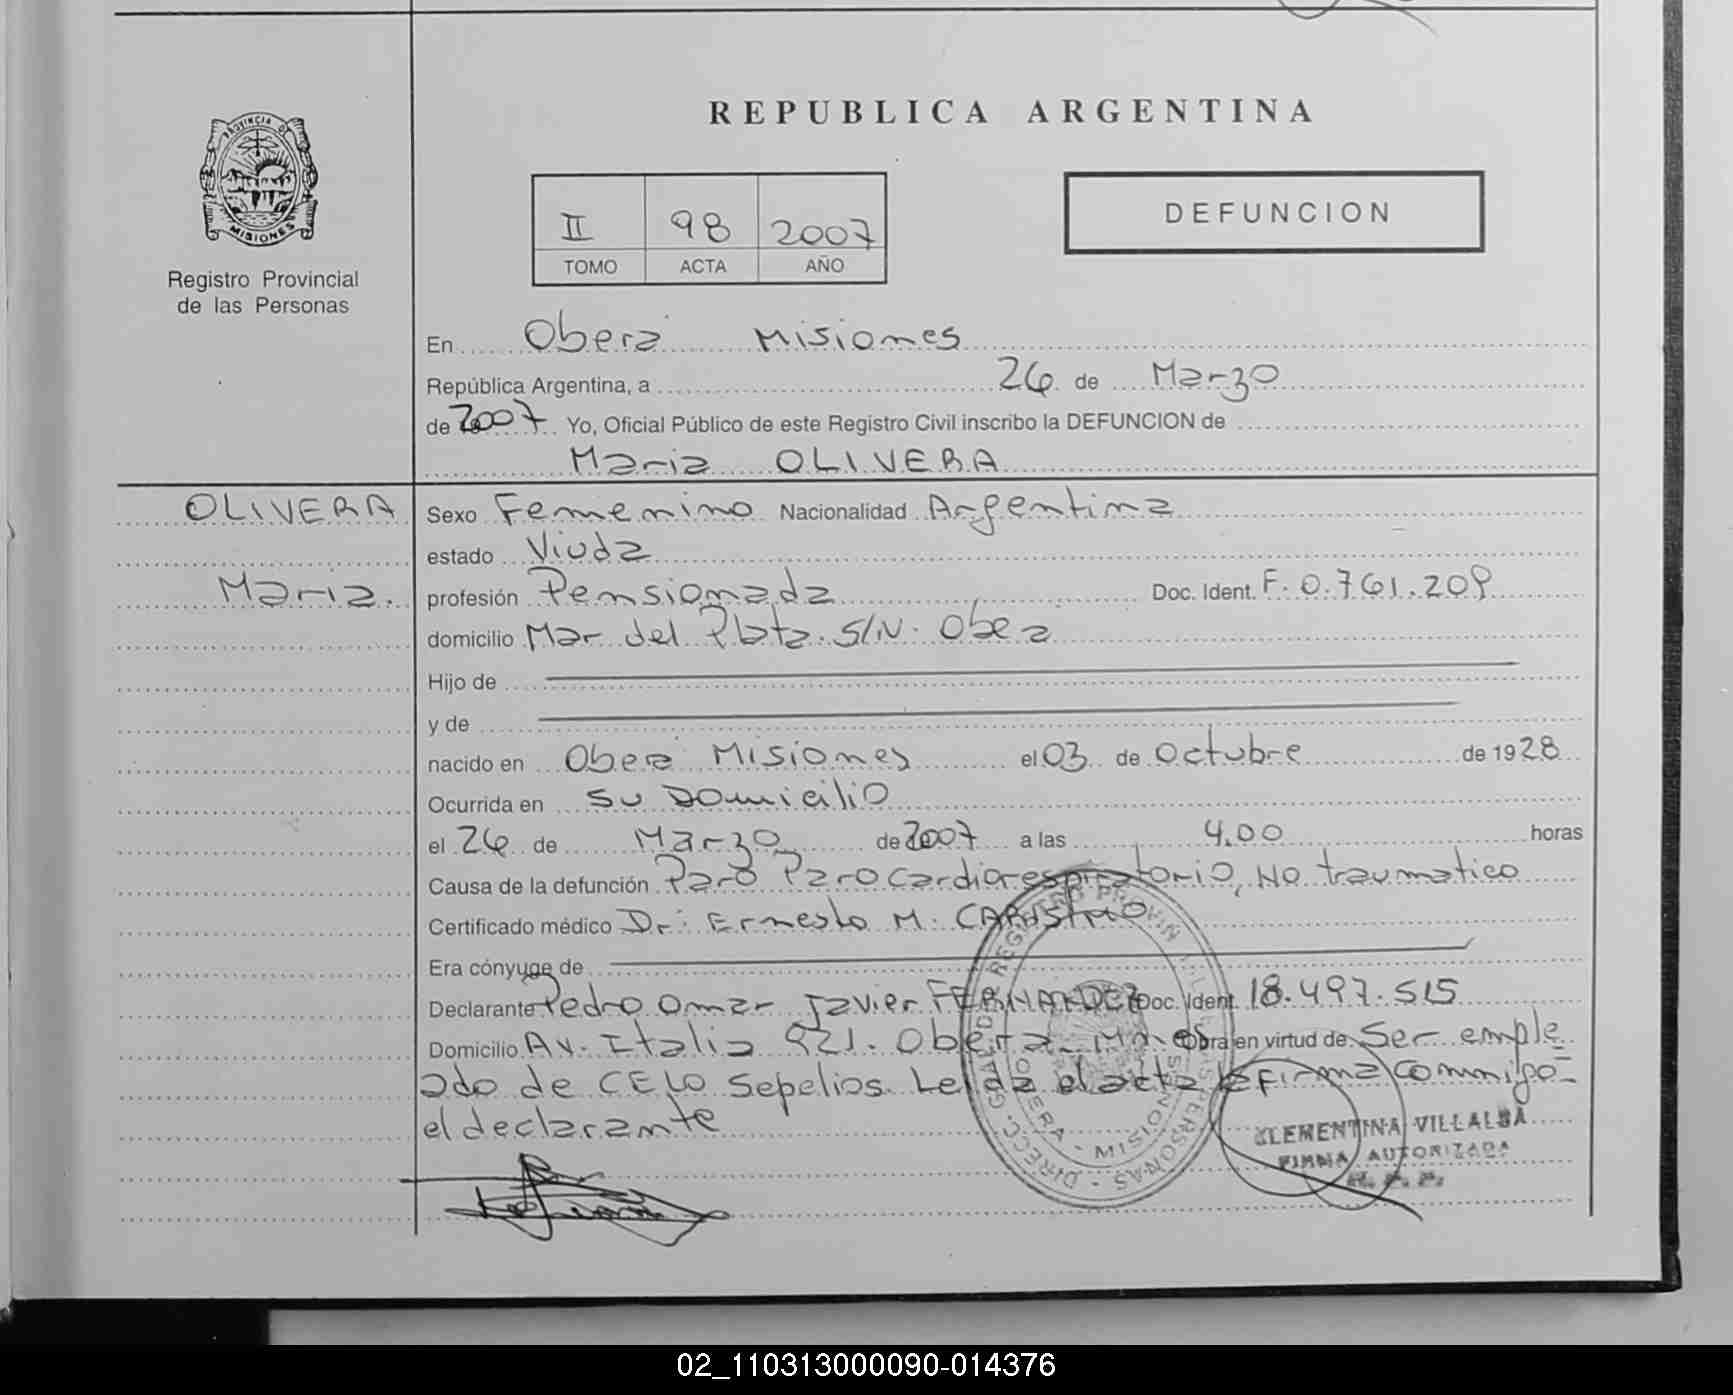 REPUBLICA ARGENTINA
PROVINCIA DE
MISIONES
Registro Provincial
de las Personas
II 98 2007
TOMO ACTA AÑO
DEFUNCION
En Obera Misiones
República Argentina, a 26 de Marzo
de 2007 Yo, Oficial Público de este Registro Civil inscribo la DEFUNCION de
Maria OLIVERA
OLIVERA
Maria.
Sexo Femenino Nacionalidad Argentina
estado Viuda
profesión Pensionada Doc. Ident. F. 0.761.209
domicilio Mar del Plata S/N. Obea
Hijo de
y de
nacido en Obera Misiones el 03 de Octubre de 1928
Ocurrida en su Domicilio
el 26 de Marzo de 2007 a las 4,00 horas
Causa de la defunción Paro Paro cardiorespiratorio, No traumatico
Certificado médico Dr: Ernesto M.
Era cónyuge de
Declarante Pedro Omar Javier FERNANDEZ Doc. Ident. 18.497.515
Domicilio Av. Italia 921. Obera Mnes Obra en virtud de Ser emple
ado de CELO Sepelios. Leida el acta la firma conmigo
el declarante
CLEMENTINA VILLALBA
FIRMA AUTORIZADA
R. P. P.
02_110313000090-014376